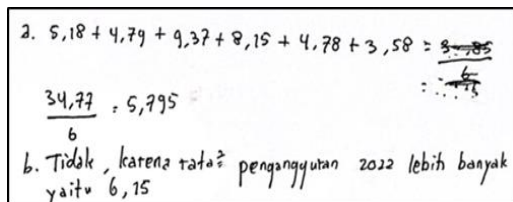 a. 5,18 + 4,79 + 9,37 + 8,15 + 4,78 + 3,58 =
34,77 / 6 = 5,795
b. Tidak, karena rata² pengangguran 2022 lebih banyak
yaitu 6,15